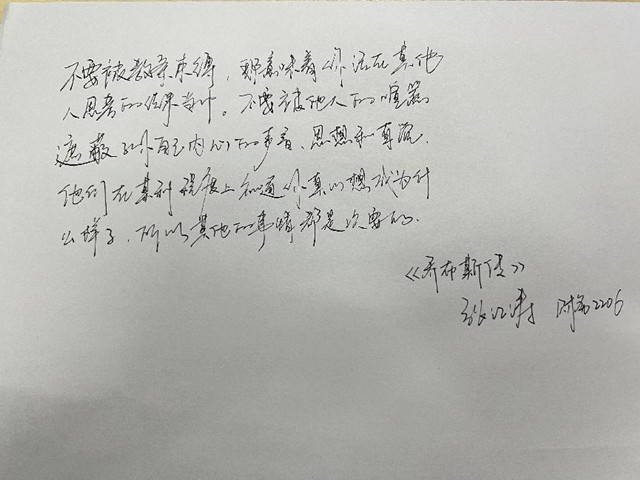 不要被教条束缚，那意味着你活在其他
人思考的结果当中。不要被他人的喧嚣
遮蔽了你自己内心的声音、思想和直觉.
他们在某种程度上知道你真的想成为什
么样子，所以其他的事情都是次要的.
《乔布斯传》
张江涛 财务2206